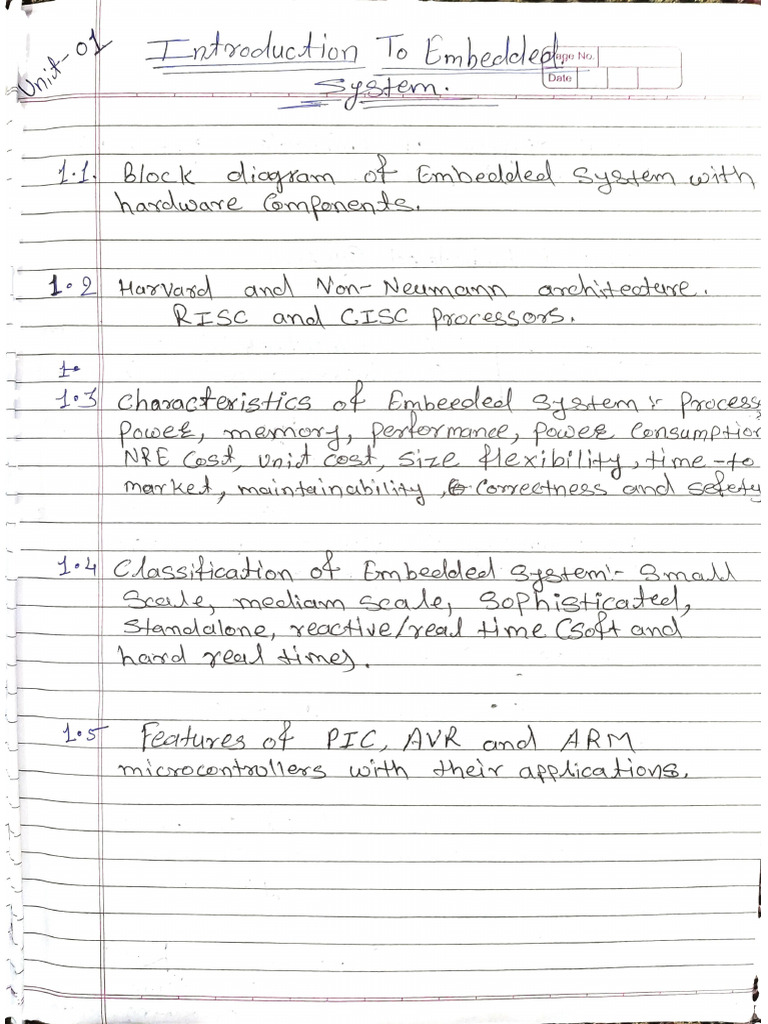 Unit-01
Introduction To Embedded
Page No.
System.
Date
1.1. Block diagram of Embedded System with
hardware Components.
1.2 Harvard and Non-Neumann architecture.
RISC and CISC Processors.
1.
1.3 Characteristics of Embeeded System :- Process
Power, memory, performance, power Consumption
NRE Cost, Unit cost, Size flexibility, time-to
market, maintainability, Correctness and sefety
1.4 Classification of Embedded System:- Small
Scale, mediam scale, Sophisticated,
Standalone, reactive/real time (Soft and
hard real times).
1.5 Features of PIC, AVR and ARM
microcontrollers with their applications.